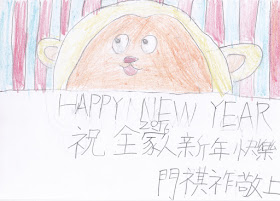 HAPPY! NEW YEAR
祝 全家人新年快樂
門祺祚敬上